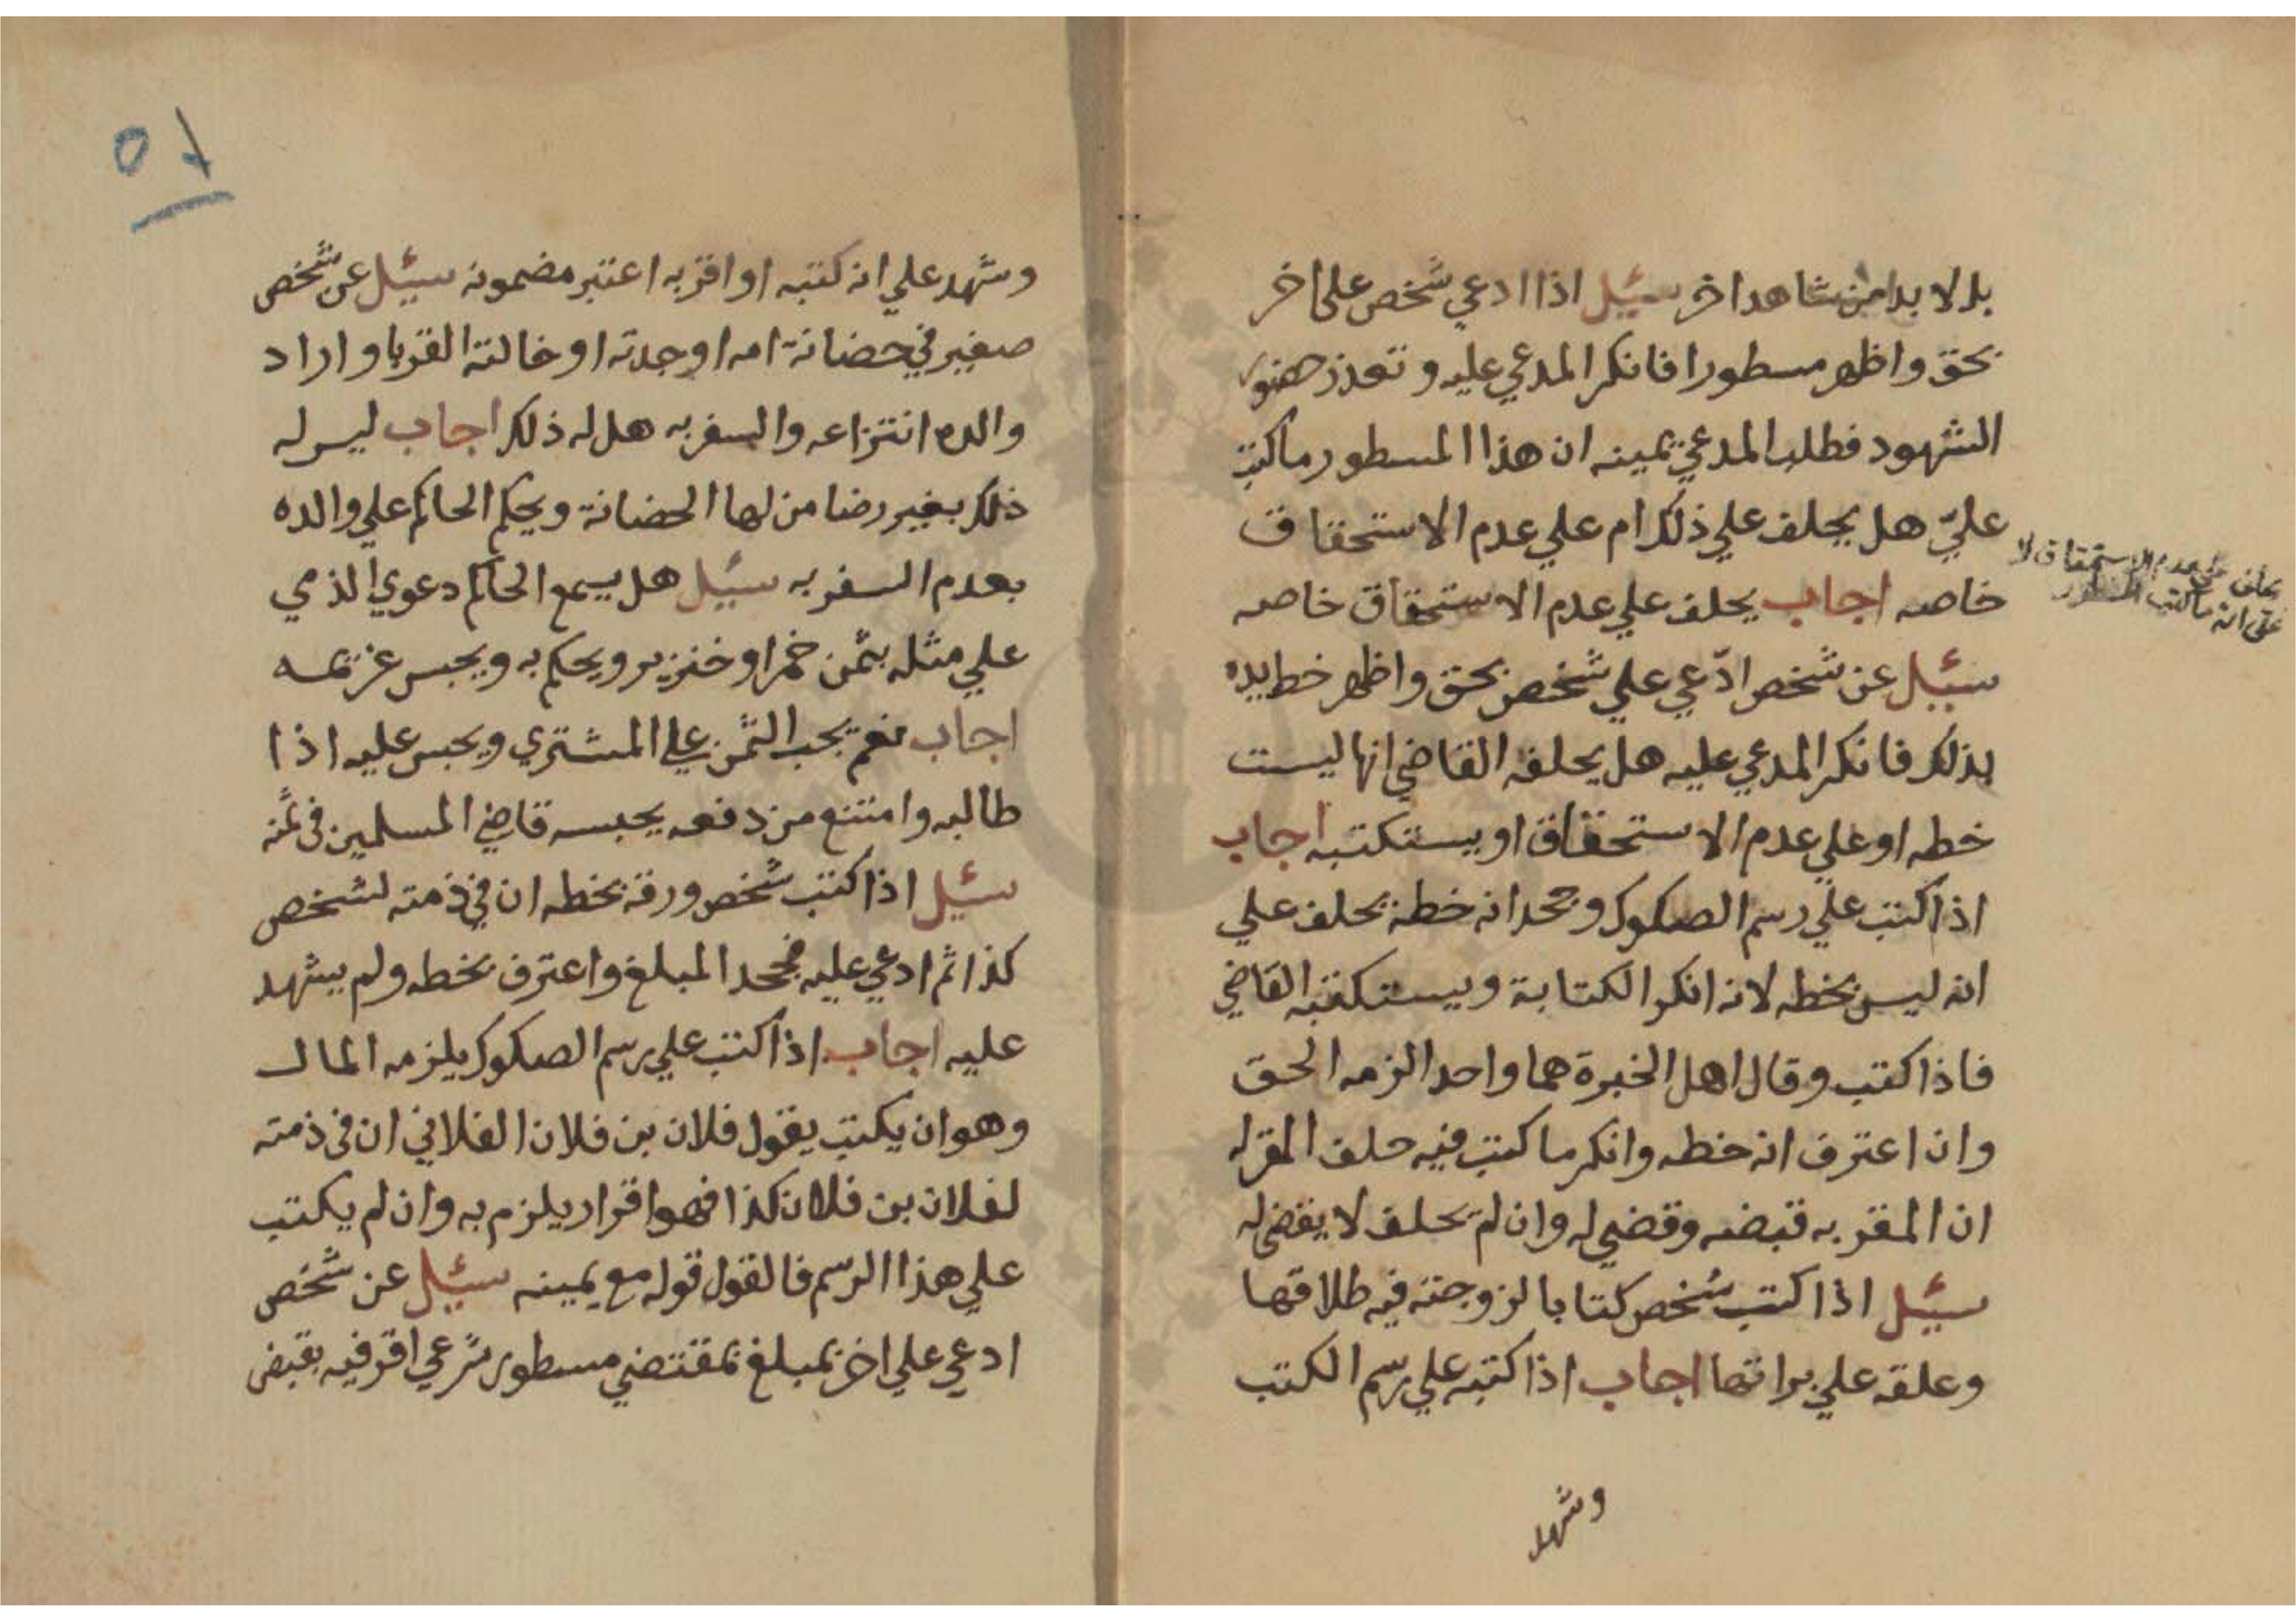 بل لا بد من شاهد اخر سئيل اذا ادعي شخص علي اخر
بحق واظهر مسطورا فانكر المدعي عليه وتعذر حضور
الشهود فطلب المدعي يمينه ان هذا المسطور ما كتب
عليّ هل يحلف علي ذلك ام علي عدم الاستحقاق
خاصه اجاب يحلف علي عدم الاستحقاق خاصه
سئيل عن شخص ادّعي علي شخص بحق واظهر خط يده
بذلك فانكر المدعي عليه هل يحلفه القاضي انها ليست
خطه او علي عدم الاستحقاق او يستكتبه اجاب
اذا كتب علي رسم الصكوك وجحد انه خطه يحلف علي
انه ليس بخطه لانه انكر الكتابة ويستكتبه القاضي
فاذا كتب وقال اهل الخبرة هما واحد الزمه الحق
وان اعترف انه خطه وانكر ما كتب فيه حلف المقر له
ان المقر به قبضه وقضي له وان لم يحلف لا يقضي له
سئيل اذا كتب شخص كتابا لزوجته فيه طلاقها
وعلقه علي براتها اجاب اذا كتبه علي رسم الكتب
وشهد
يحلف علي عدم الاستحقاق لا
علي انه ما كتب المسطور
٥١
وشهد علي انه كتبه او اقر به اعتبر مضمونه سئيل عن شخص
صغير في حضانة امه او جدته او خالته القربا واراد
والده انتزاعه والسفر به هل له ذلك اجاب ليس له
ذلك بغير رضا من لها الحضانة ويحكم الحاكم علي والده
بعدم السفر به سئيل هل يسمع الحاكم دعوي الذمي
علي مثله بثمن خمر او خنزير ويحكم به ويحبس غريمه
اجاب نعم يجب الثمن علي المشتري ويحبس عليه اذا
طالبه وامتنع من دفعه يحبسه قاضي المسلمين في ثمنه
سئيل اذا كتب شخص ورقة بخطه ان في ذمته لشخص
كذا ثم ادعي عليه فجحد المبلغ واعترف بخطه ولم يشهد
عليه اجاب اذا كتب علي رسم الصكوك يلزمه المال
وهو ان يكتب يقول فلان بن فلان الفلاني ان في ذمته
لفلان بن فلان كذا فهو اقرار يلزم به وان لم يكتب
علي هذا الرسم فالقول قوله مع يمينه سئيل عن شخص
ادعي علي اخر بمبلغ بمقتضي مسطور شرعي اقر فيه بقبض